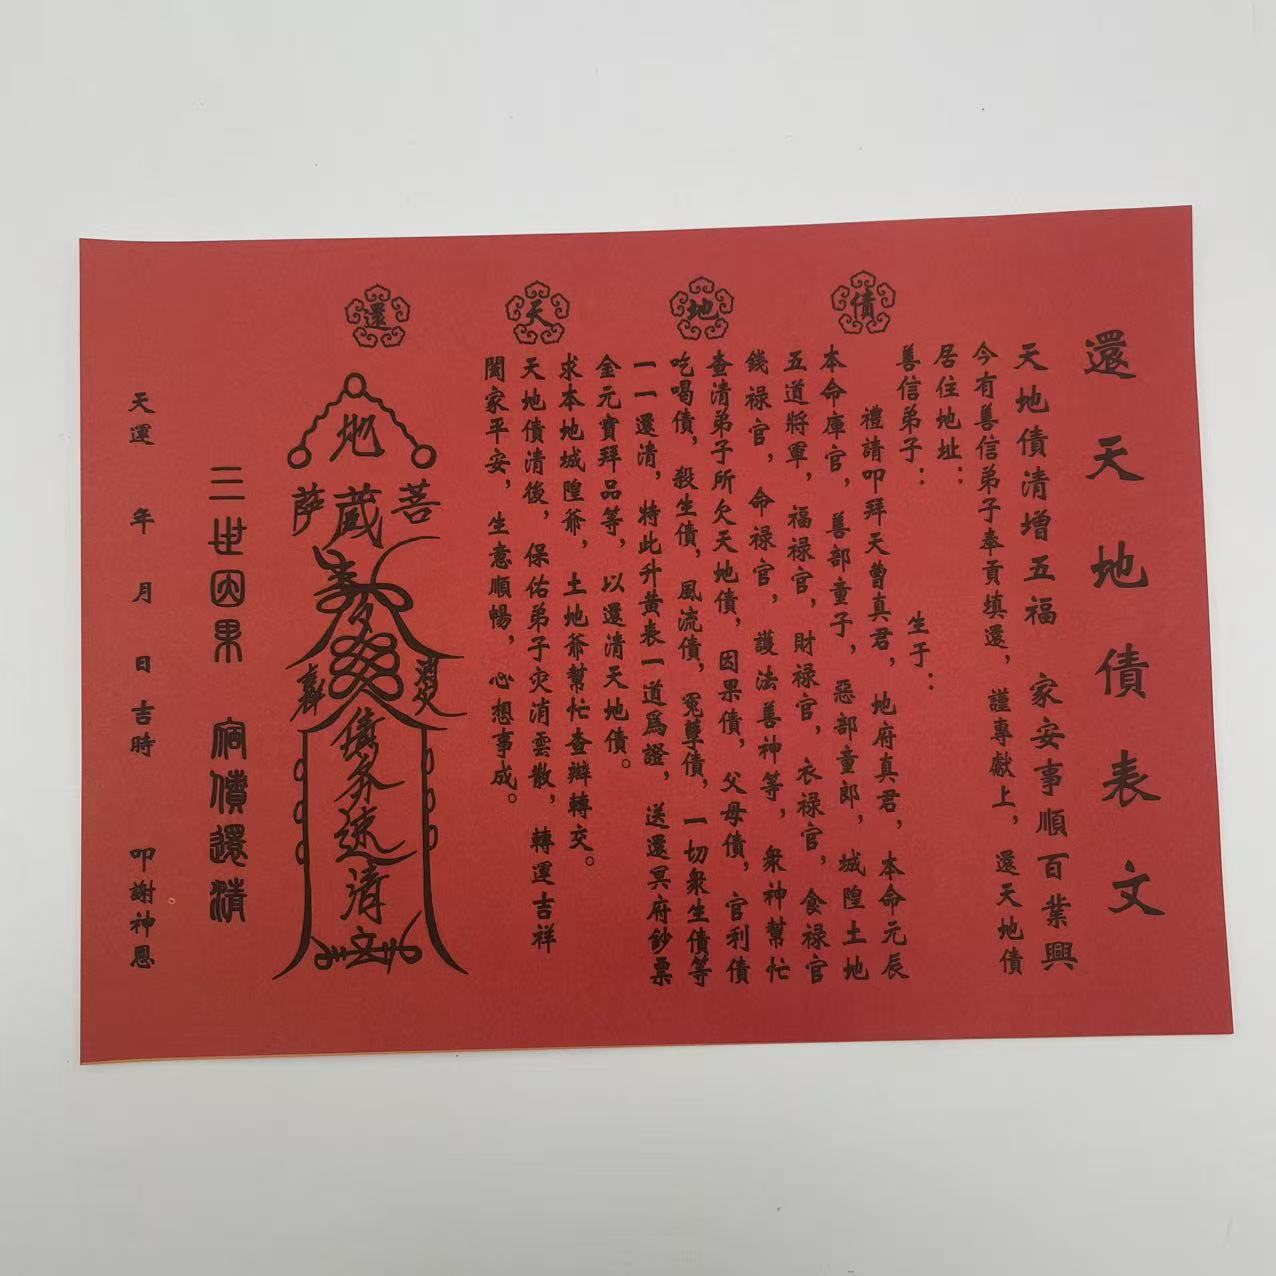 還天地債表文
天地債清增五福　家安事順百業興
今有善信弟子奉貢填還，謹專獻上，還天地債
居住地址：
善信弟子：　　　生于：
禮請叩拜天曹真君，地府真君，本命元辰
本命庫官，善部童子，惡部童郎，城隍土地
五道將軍，福禄官，財禄官，衣禄官，食禄官
錢禄官，命禄官，護法善神等，衆神幫忙
查清弟子所欠天地債，因果債，父母債，官利債
吃喝債，殺生債，風流債，冤孽債，一切衆生債等
一一還清，特此升黄表一道爲證，送還冥府鈔票
金元寶拜品等，以還清天地債。
求本地城隍爺，土地爺幫忙查辦轉交。
天地債清後，保佑弟子灾消雲散，轉運吉祥
闔家平安，生意順暢，心想事成。
還天地債
地藏
菩薩
債务速清
文
三世因果　債還清
天運　年　月　日吉時　叩謝神恩